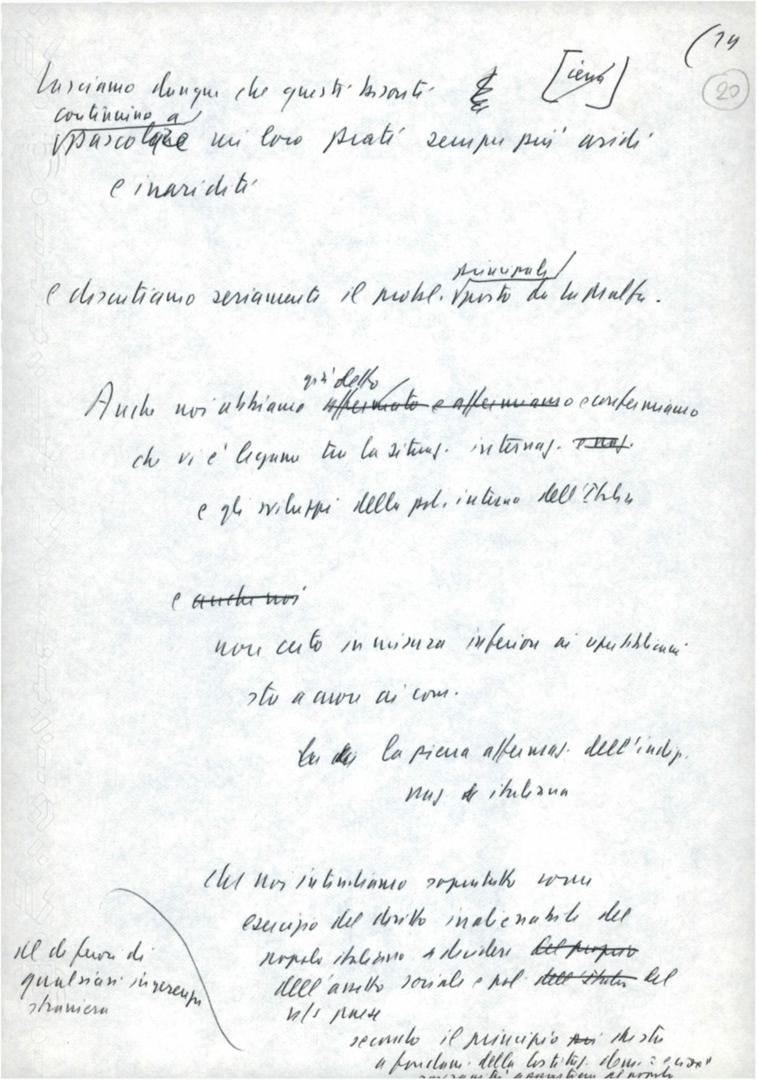 (14
20
Lasciamo dunque che questi bisonti
continuino a
pascolare nei loro prati sempre più aridi
e inariditi
principale
e discutiamo seriamente il probl. posto da La Malfa.
già detto
Anche noi abbiamo affermato e affermiamo e confermiamo
che vi è legame tra la situaz. internaz. e naz.
e gli sviluppi della pol. interna dell'Italia
e anche noi
non certo in misura inferiore ai repubblicani
sta a cuore ai com.
la piena affermaz. dell'indip.
naz. italiana
che noi intendiamo soprattutto come
esercizio del diritto inalienabile del
popolo italiano a decidere del proprio
dell'assetto sociale e pol. dell'Italia del
n/s paese
al di fuori di
qualsiasi ingerenza
straniera
secondo il principio posto
a fondam. della Costituz. dem.